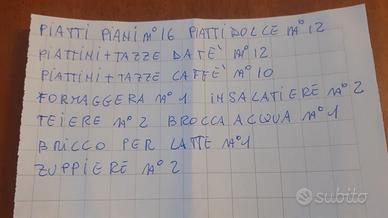 PIATTI PIANI N° 16 PIATTI DOLCE N° 12
PIATTINI + TAZZE DA TE' N° 12
PIATTINI + TAZZE CAFFE' N° 10
FORMAGGERA N° 1 INSALATIERE N° 2
TEIERE N° 2 BROCCA ACQUA N° 1
BRICCO PER LATTE N° 1
ZUPPIERE N° 2
subito